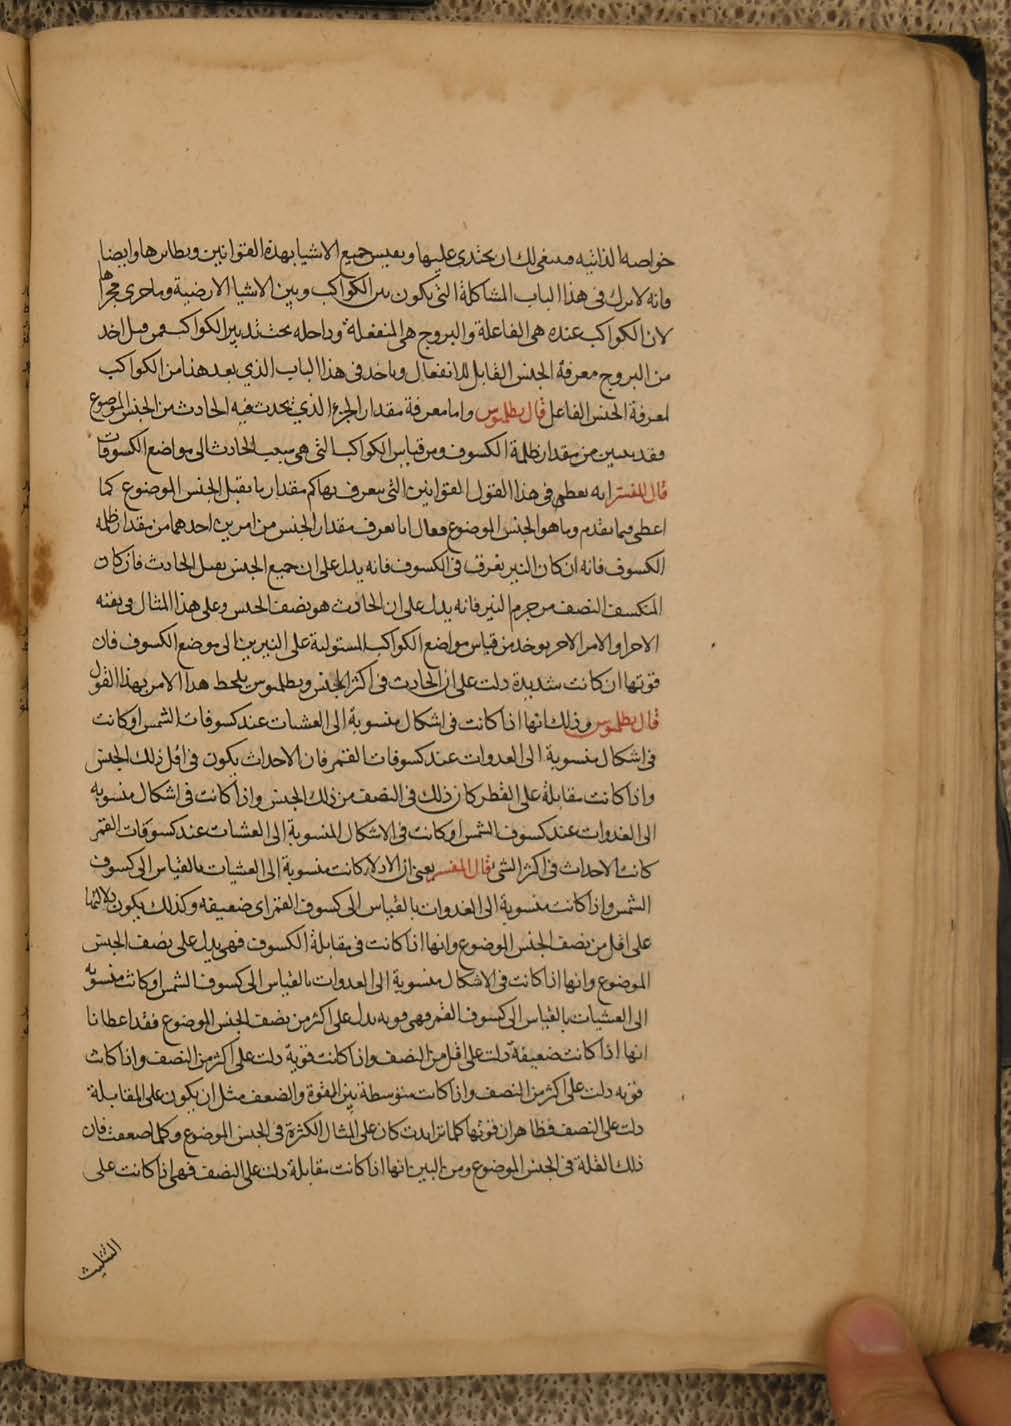 خواصه الذاتيه فينبغي لك ان يحتذي عليها ويقيس جميع الاشيا بهذه القوانين ونظايرها وايضا
فانه لا يترك في هذا الباب المشاكلة التي يكون بين الكواكب وبين الاشيا الارضية وما جرى مجراها
لان الكواكب عنده هي الفاعلة والبروج هي المنفعلة بين الكواكب فمن قبل اخذ
من البروج معرفة الجنس القابل للانفعال وياخذ في هذا الباب الذي بعد هذا من الكواكب
لمعرفة الجنس الفاعل قال بطلميوس واما معرفة مقدار الجزء الذي يحدث فيه الحادث من الجنس الموضوع
فقد يتبين من مقدار ظلمة الكسوف ومن قياس الكواكب التي هي سبب الحادث الى مواضع الكسوفات
قال المفسر انه يعطي في هذا القول القوانين التي يتعرف بها كم مقدار ما يقبل الجنس الموضوع كما
اعطى فيما تقدم وما هو الجنس الموضوع فقال انا نعرف مقدار الجنس من امرين احدهما من مقدار ظلمة
الكسوف فانه ان كان النير يغرق في الكسوف فانه يدل على ان جميع الجنس يقبل الحادث فان كان
المنكسف النصف من جرم النير فانه يدل على ان الحادث هو بنصف الجنس وعلى هذا المثال في بقية
الاجزا والامر الاخر يوخذ من قياس مواضع الكواكب المستولية على النيرين الى موضع الكسوف فان
قوتها ان كانت شديدة دلت على ان الحادث في اكثر الجنس وبطلميوس يلحظ هذا الامر بهذا القول
قال بطلميوس وذلك انها اذا كانت في اشكال منسوبة الى العشيات عند كسوفات الشمس او كانت
في اشكال منسوبة الى الغدوات عند كسوفات القمر فان الاحداث يكون في اقل ذلك الجنس
واذا كانت مقابلة على القطر كان ذلك في النصف من ذلك الجنس واذا كانت في اشكال منسوبه
الى الغدوات عند كسوف الشمس او كانت في الاشكال المنسوبة الى العشيات عند كسوفات القمر
كانت الاحداث في اكثر الشي قال المفسر يعني ان الادلا اذا كانت منسوبة الى العشيات بالقياس الى كسوف
الشمس واذا كانت منسوبة الى الغدوات بالقياس الى كسوف القمر اي ضعيفه وكذلك يكون دلالتها
على اقل من نصف الجنس الموضوع وانها اذا كانت في مقابلة الكسوف فهي يدل على نصف الجنس
الموضوع وانها اذا كانت في الاشكال منسوبة الى الغدوات بالقياس الى كسوف الشمس او كانت منسوبه
الى العشيات بالقياس الى كسوف القمر فهي قويه يدل على اكثر من نصف الجنس الموضوع فقد اعطانا
انها اذا كانت ضعيفة دلت على اقل من النصف واذا كانت قوية دلت على اكثر من النصف واذا كانت
قويه دلت على اكثر من النصف واذا كانت متوسطة بين القوة والضعف مثل ان يكون على المقابلة
دلت على النصف فظاهر ان قوتها كلما تزايدت كان على المثال الكثرة في الجنس الموضوع وكلما ضعفت فان
ذلك القلة في الجنس الموضوع ومن البين انها اذا كانت مقابلة دلت على النصف فهي اذا كانت على
التثليث